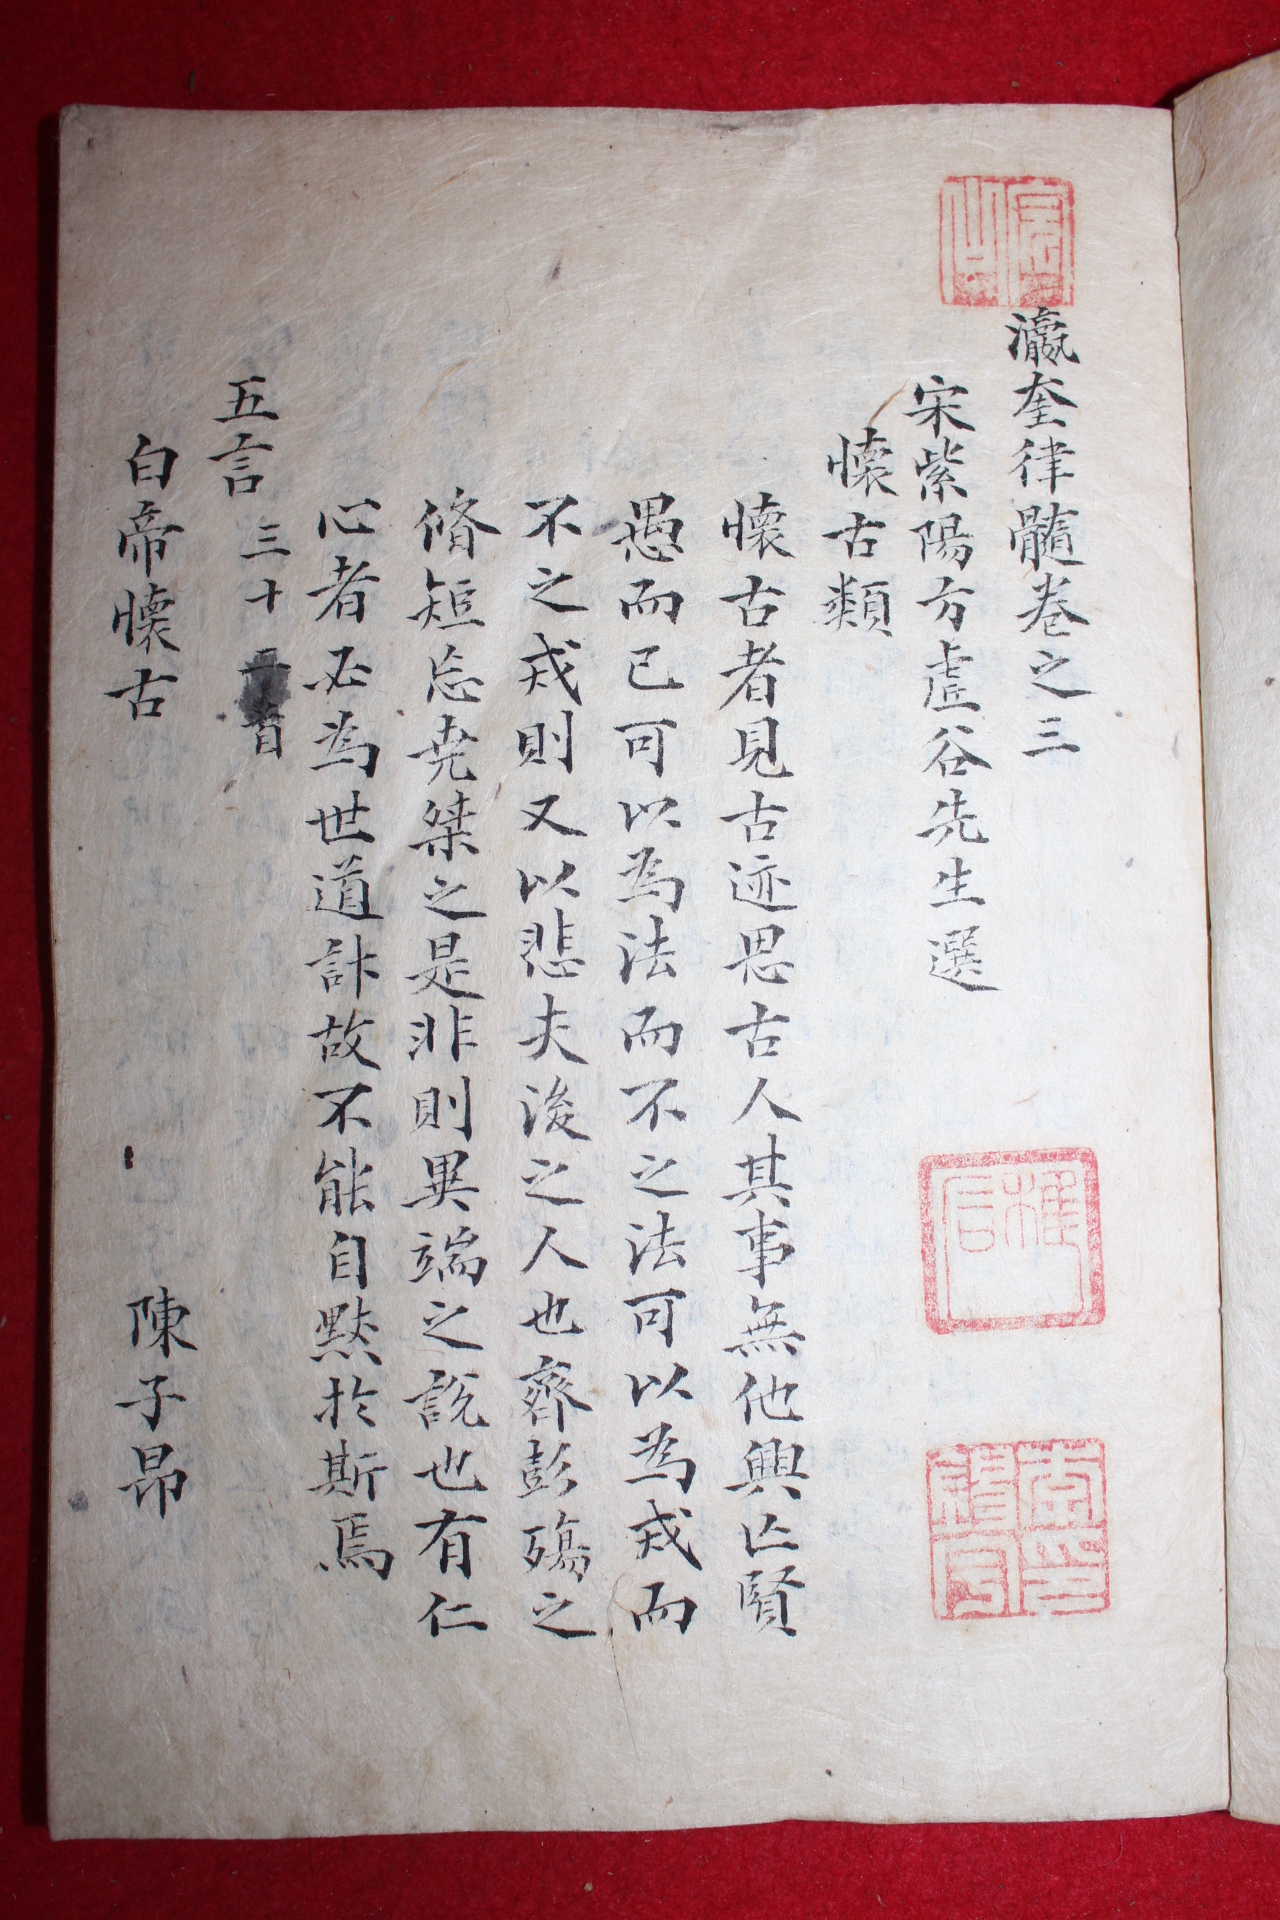 瀛奎律髓卷之三
宋紫陽方虛谷先生選
懷古類
懷古者見古迹思古人其事無他興亡賢
愚而已可以為法而不之法可以為戒而
不之戒則又以悲夫後之人也齊彭殤之
脩短忘尭桀之是非則異端之說也有仁
心者必為世道計故不能自默於斯焉
五言 三十首
白帝懷古 陳子昂